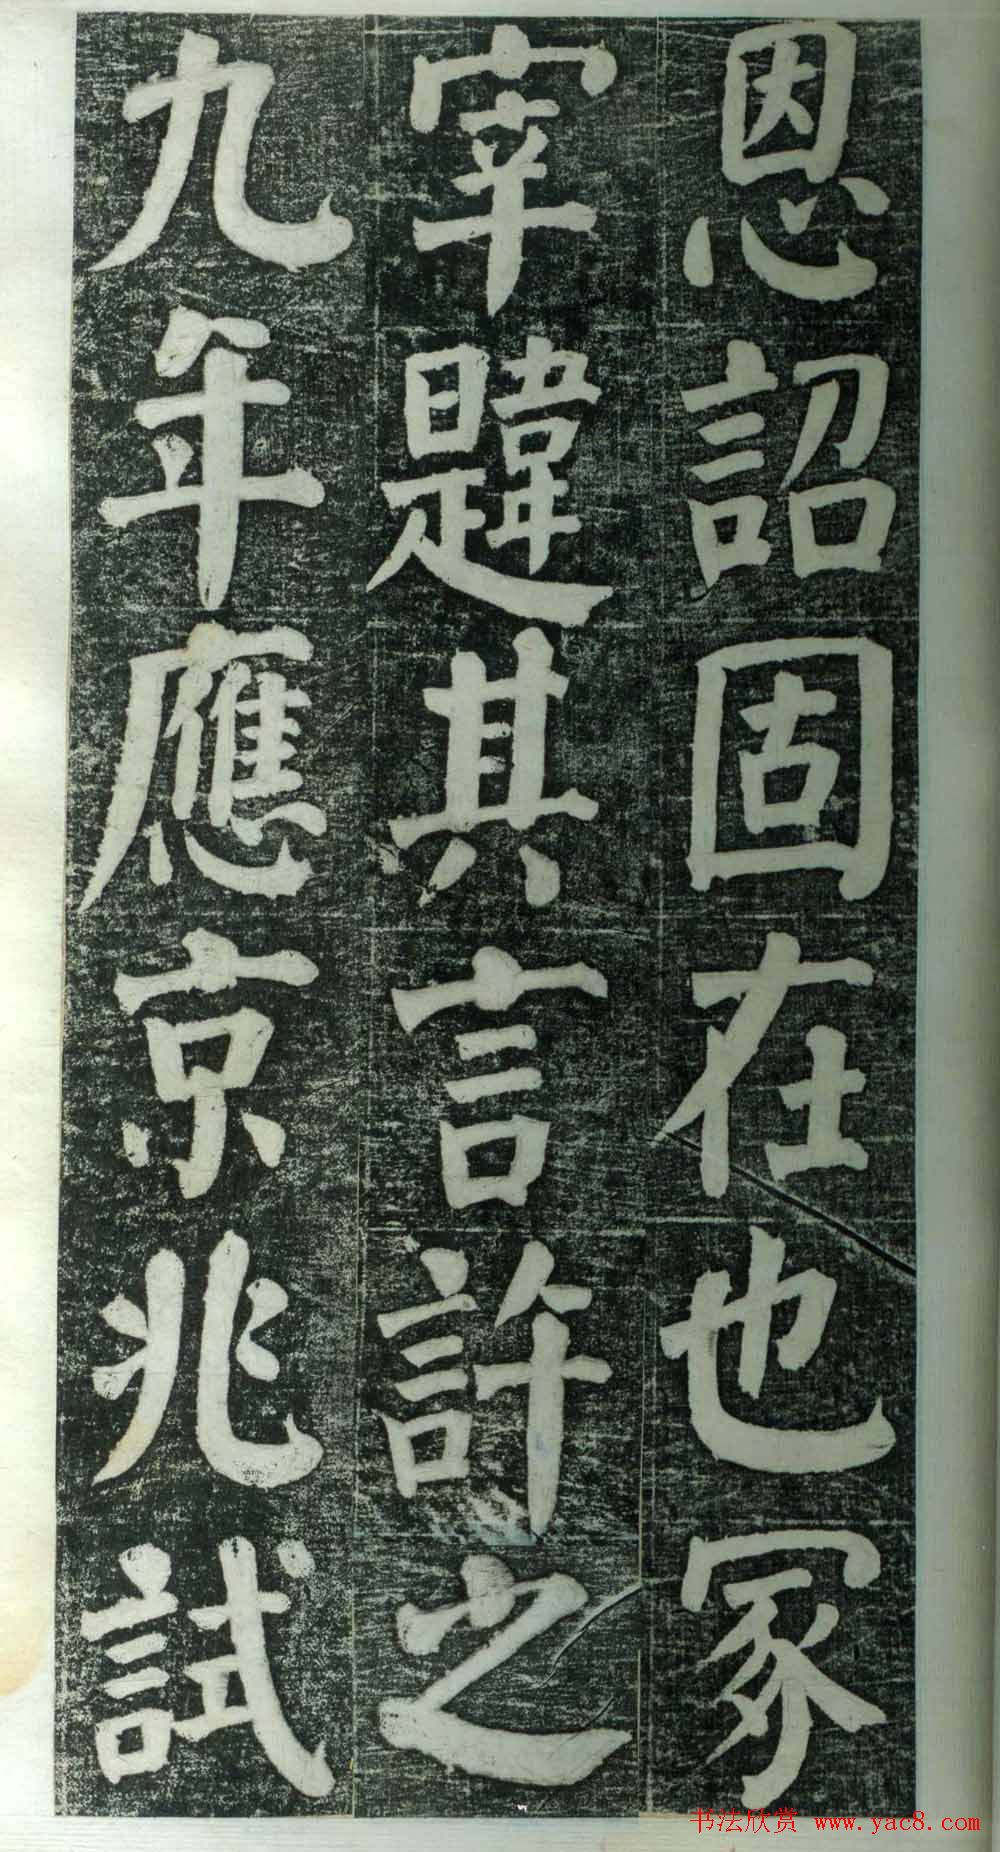 恩詔固在也冢
宰韙其言許之
九年應京兆試
书法欣赏 www.yac8.com